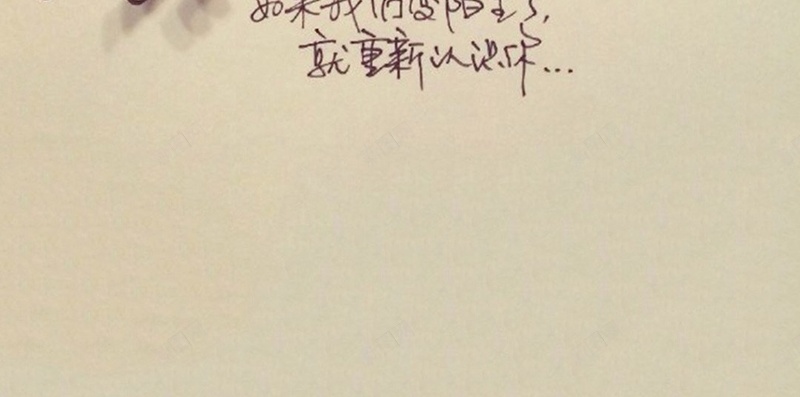 如果我们变陌生了,
就重新认识你...